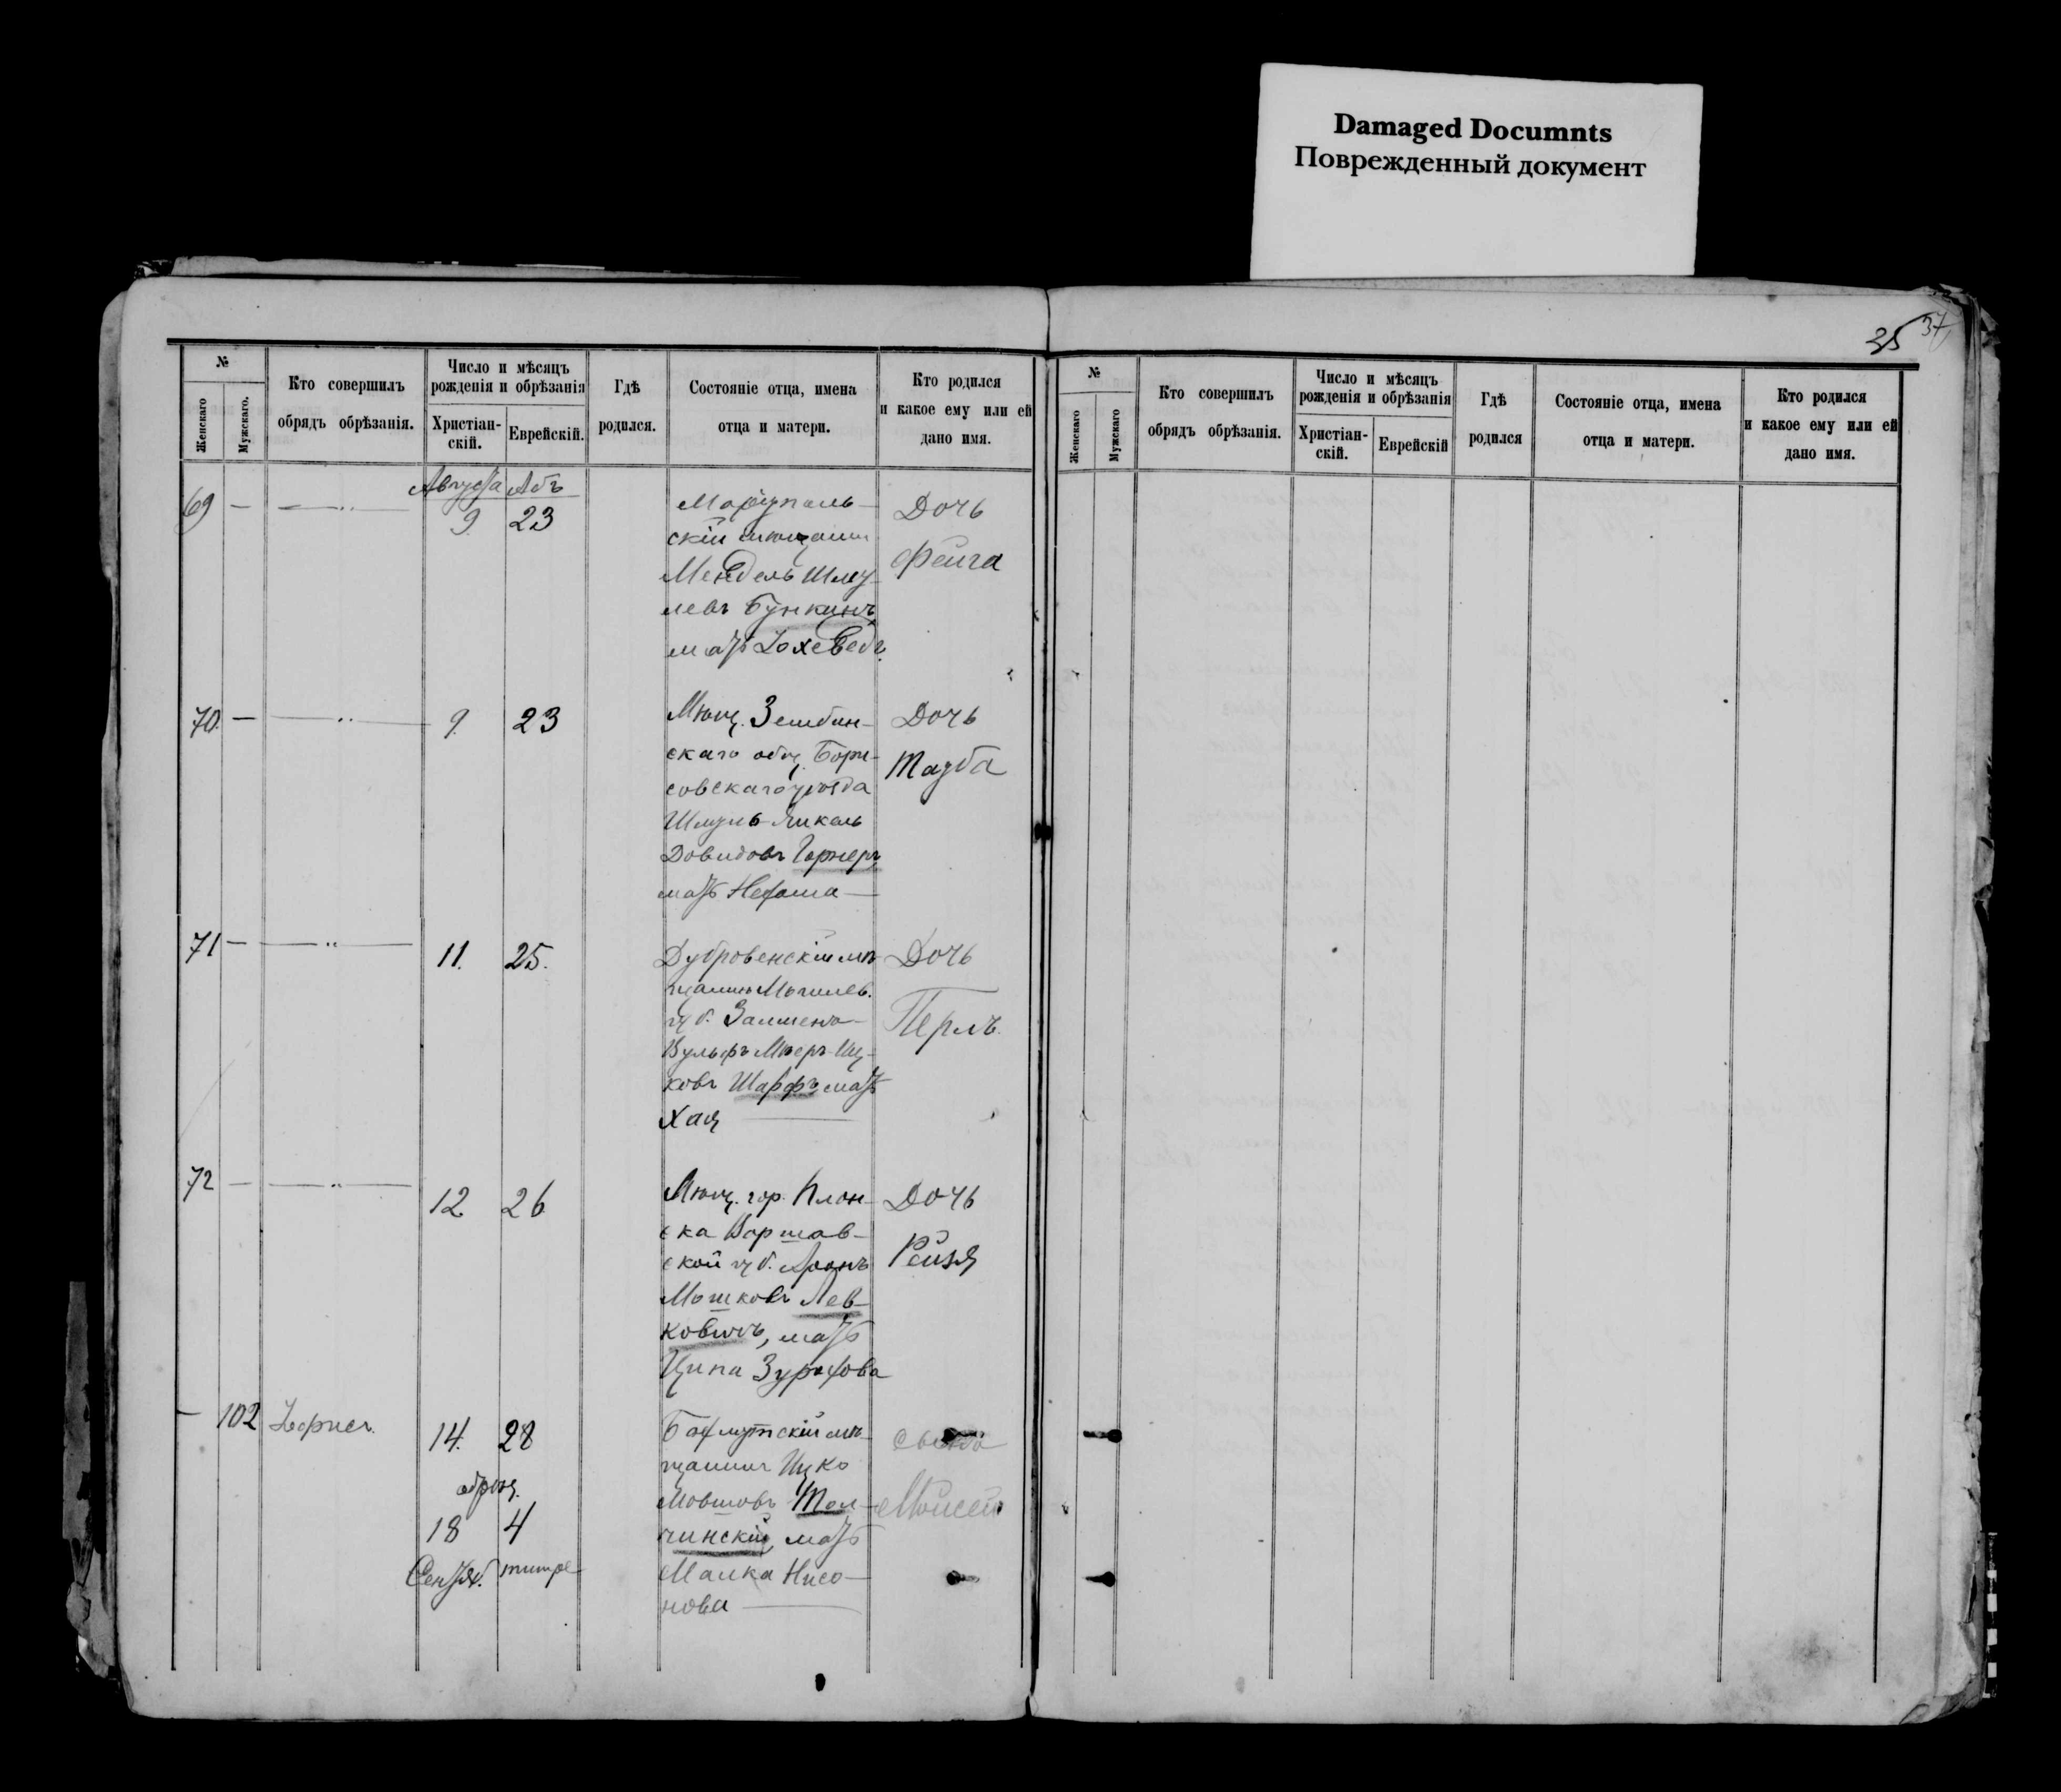 Damaged Documnts
Поврежденный документ
35 37
№
Женскаго
Мужскаго.
Кто совершилъ
обрядъ обрѣзанія.
Число и мѣсяцъ
рожденія и обрѣзанія
Христіан-
скій.
Еврейскій.
Гдѣ
родился.
Состояніе отца, имена
отца и матери.
Кто родился
и какое ему или ей
дано имя.
Августа Абъ
69 — — „ — 9. 23
Маріуполь-
скій мѣщанин
Мендель Шму-
левъ Бункинъ,
мать Іохеведъ
Дочь
Фейга
70. — — „ — 9. 23
Мѣщ. Зембин-
скаго общ. Бори-
совскаго уѣзда
Шмуль Янкель
Довидовъ Горнеръ,
мать Нехама —
Дочь
Тауба
71 — — „ — 11. 25.
Дубровенскій мѣ-
щанинъ Могилев.
губ. Залмен-
Вульфъ Мееръ-Иц-
ковъ Шаффъ, мать
Хая —
Дочь
Перлъ.
72 — — „ — 12 26
Мѣщ. гор. Плон-
ска Варшав-
ской губ. Аронъ
Мошковъ Лев-
ковичъ, мать
Ципа Зурахова
Дочь
Рейзя
— 102 14. 28
обрѣз.
18 4
Сентяб. тишре
Бахмутскій мѣ-
щанинъ Ицко
Мовшовъ Тол-
чинскій, мать
Малка Нисо-
нова —
Моисей
№
Женскаго
Мужскаго
Кто совершилъ
обрядъ обрѣзанія.
Число и мѣсяцъ
рожденія и обрѣзанія
Христіан-
скій.
Еврейскій
Гдѣ
родился
Состояніе отца, имена
отца и матери.
Кто родился
и какое ему или ей
дано имя.